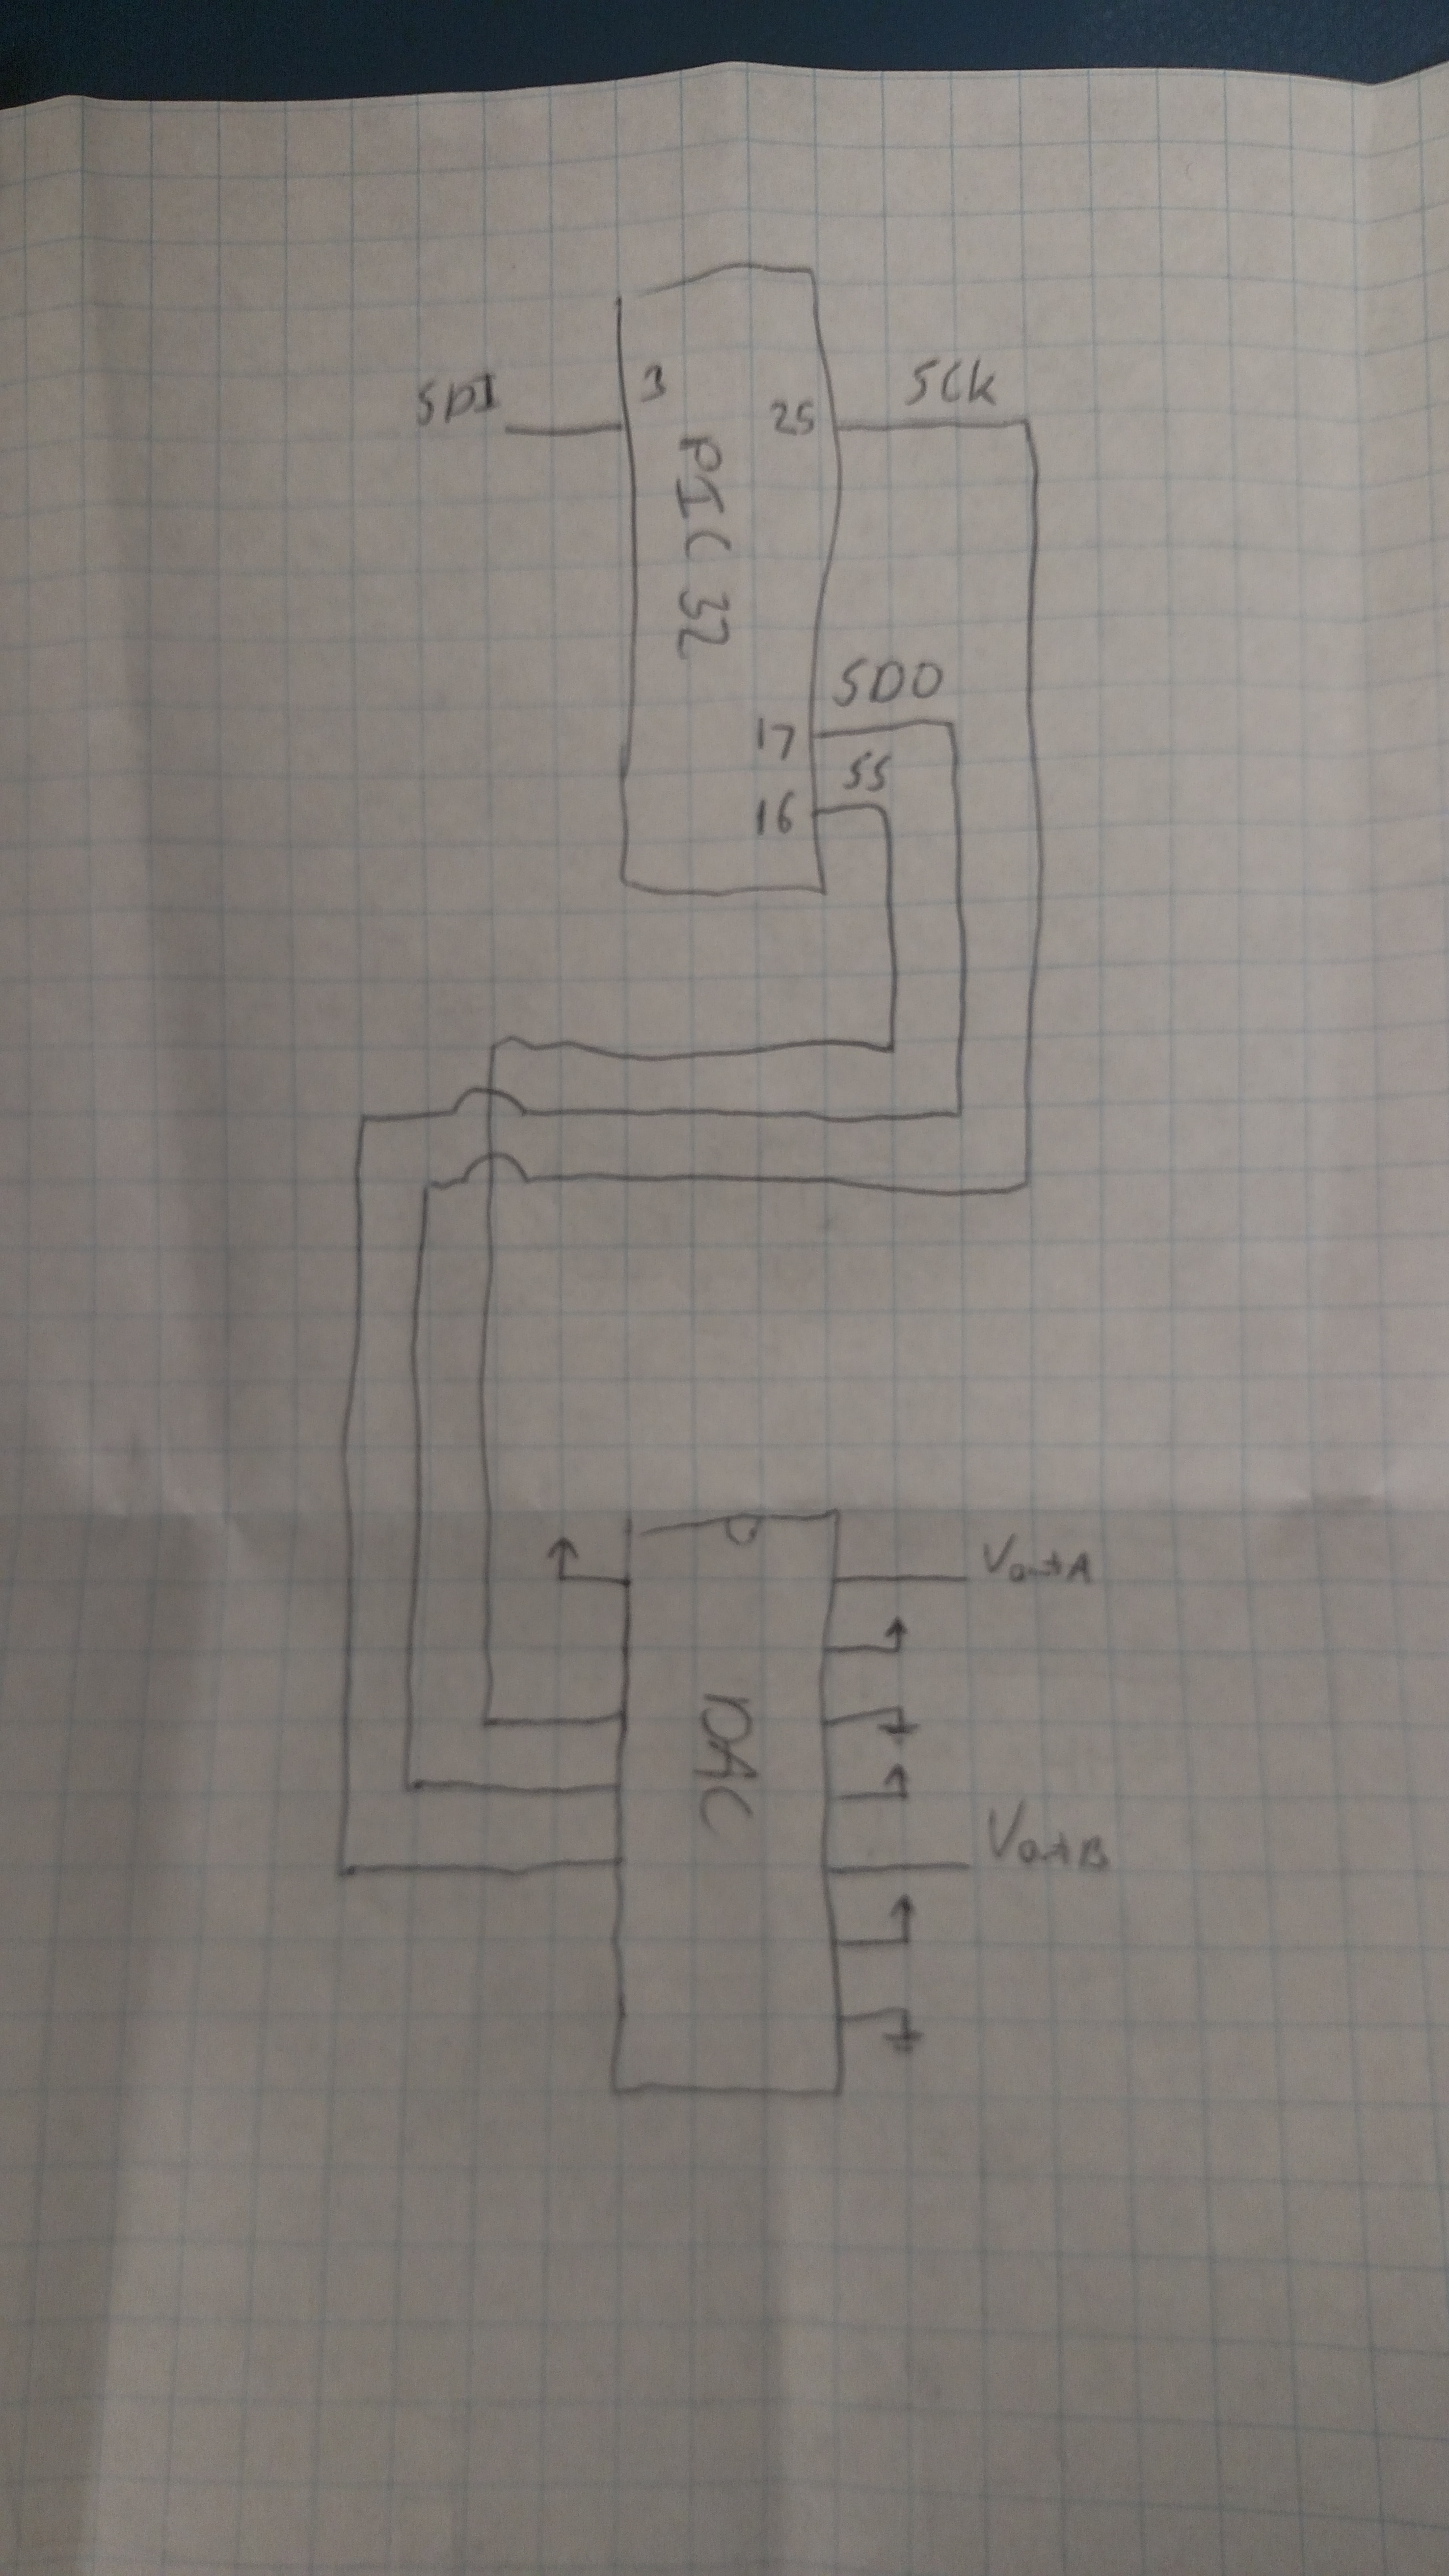 SDI
3
25
SCK
PIC32
SDO
17
SS
16
VoutA
DAC
VoutB